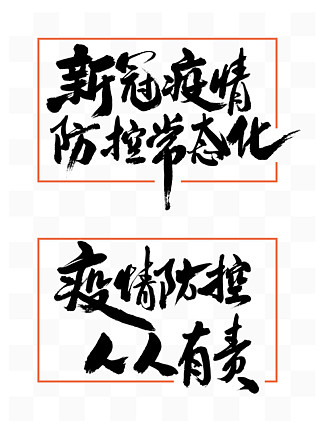 新冠疫情
防控常态化
疫情防控
人人有责